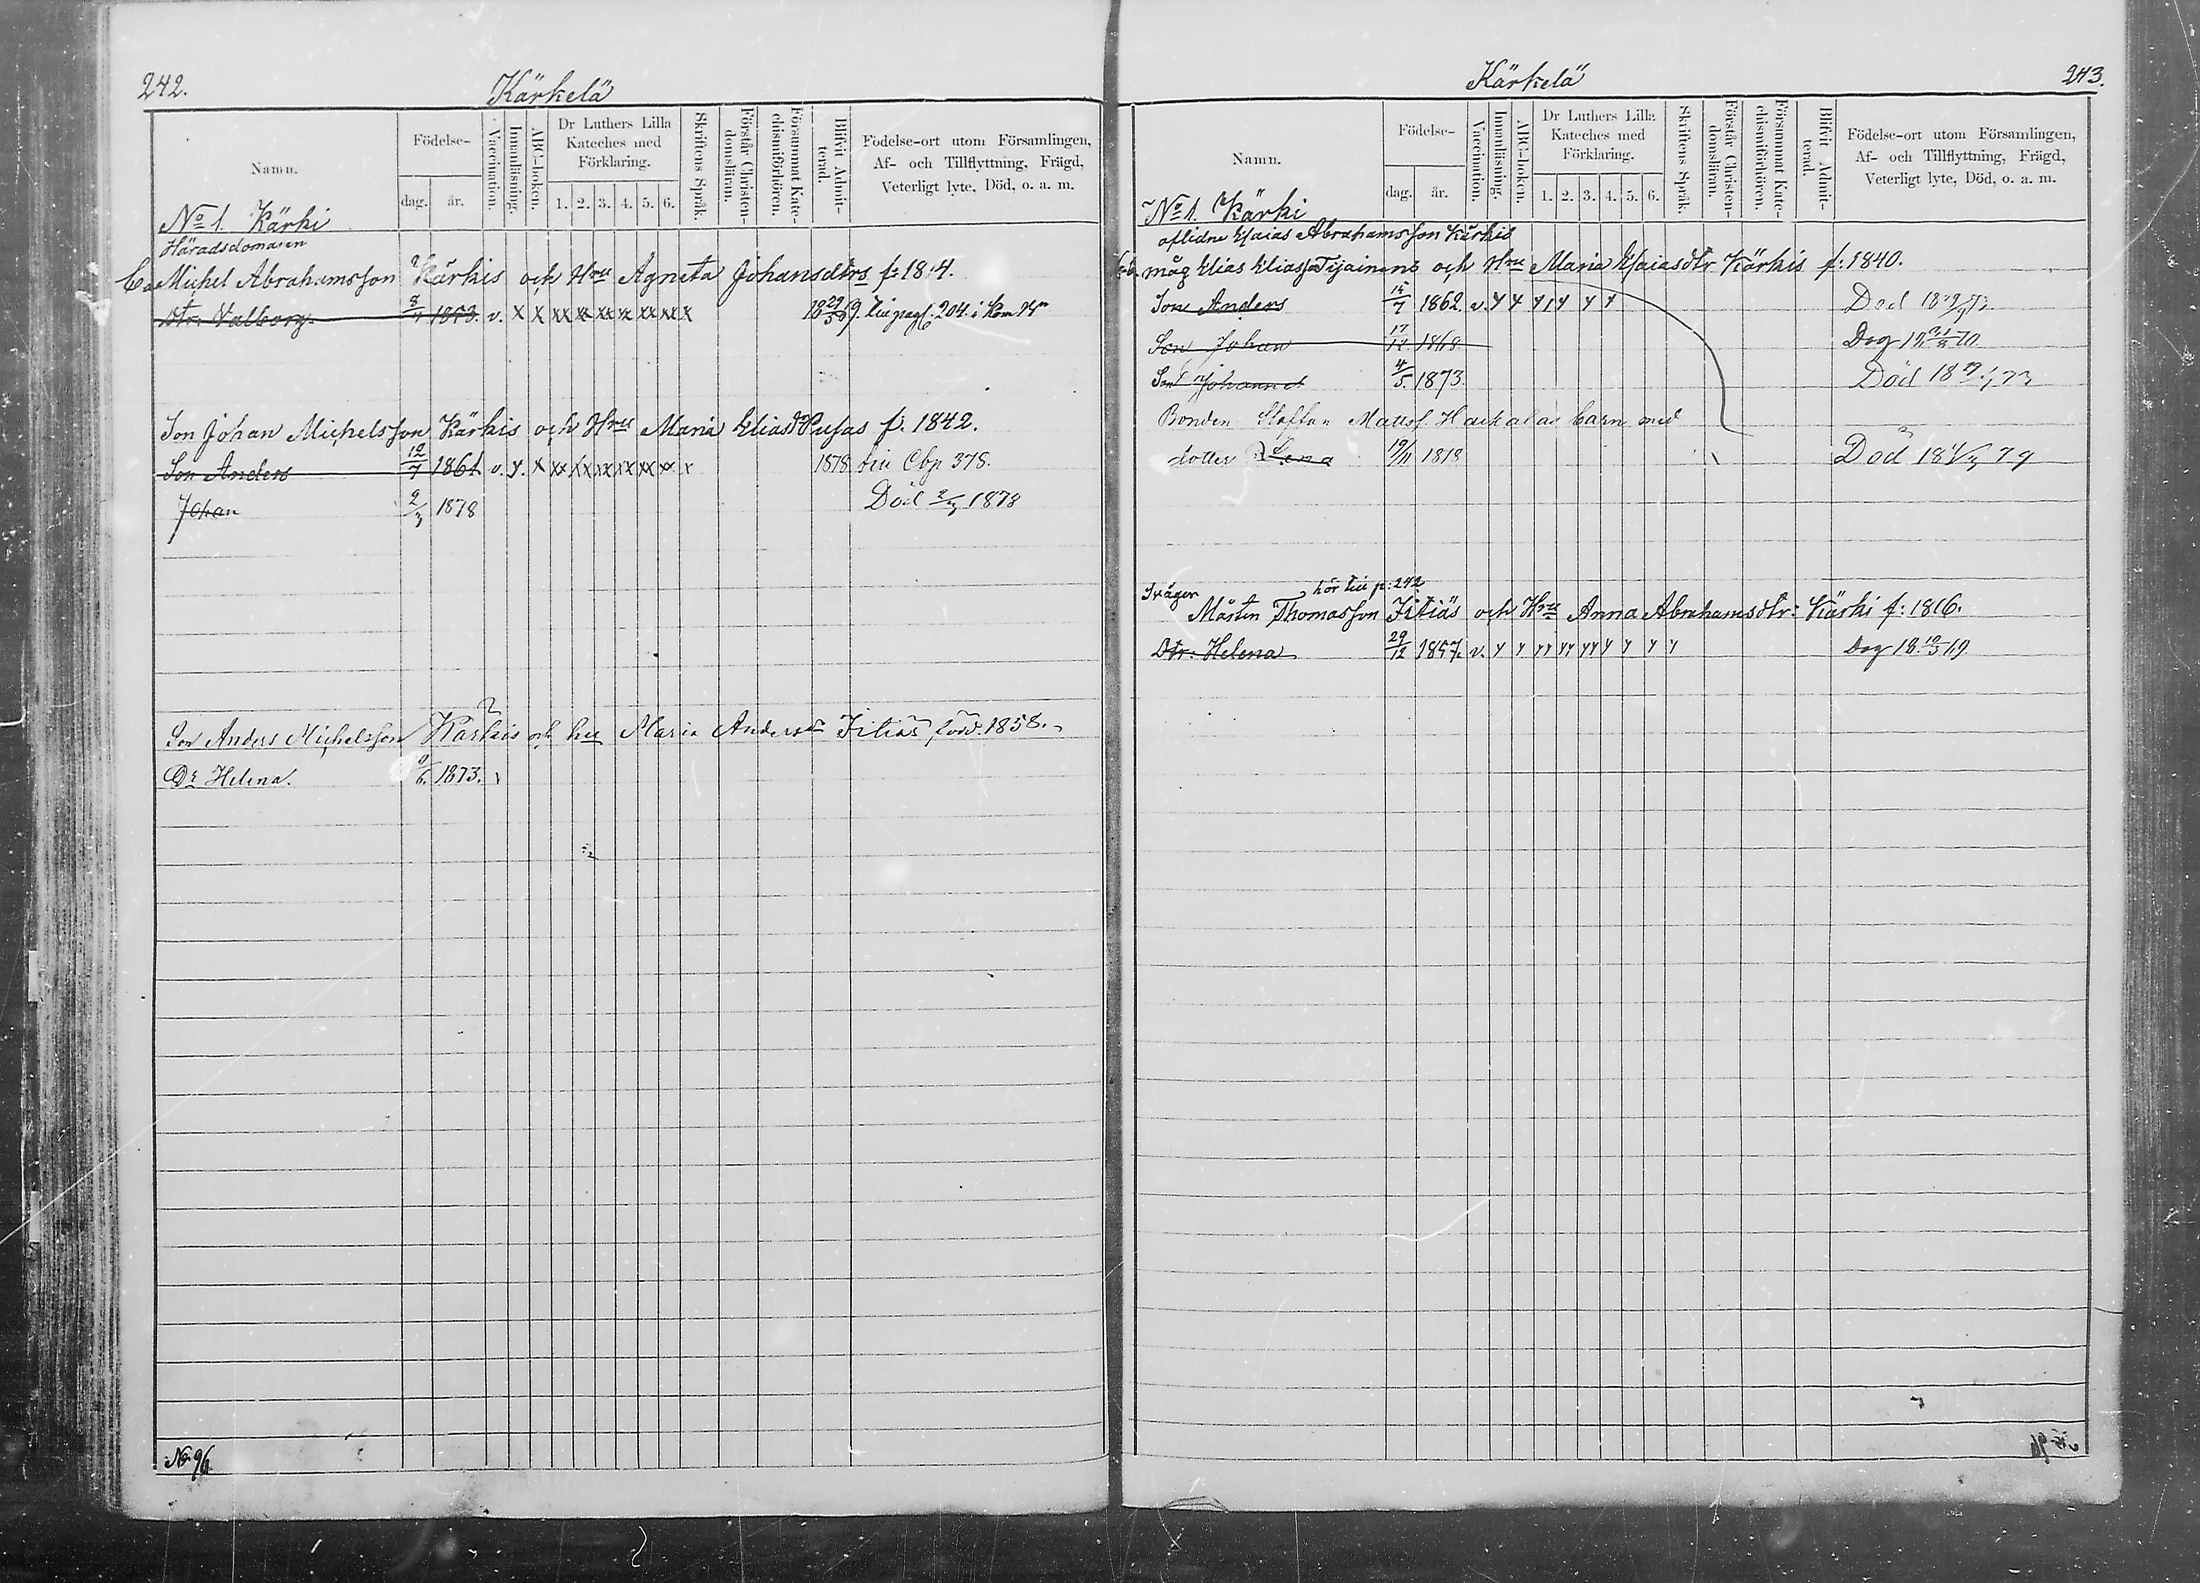 242.
Kärkelä
Namn.
Födelse-
dag.
år.
Vaccination.
Innanläsning.
ABC-boken.
Dr Luthers Lilla
Kateches med
Förklaring.
1. 2. 3. 4. 5. 6.
Skriftens Språk.
Förstår Christen-
domsläran.
Försummat Kate-
chismiförhören.
Blifvit Admit-
terad.
Födelse-ort utom Församlingen,
Af- och Tillflyttning, Frägd,
Veterligt lyte, Död, o. a. m.
No 1. Kärki
Häradsdomaren
Michel Abrahamsson Kärkis och Hru Agneta Johansdtrs f: 1814.
Dtr: Valborg 1853. v. x x xx xx xx xx xx xx x
Son Johan Michelsson Kärkis och Hru Maria Eliasdr Pusas f. 1842.
Son Anders 12/7 1861 v. y. x xx xx xx xx xx xx x 1878 Cbp 378.
Johan 2/3 1878 Död 1878
Son Anders Michelsson Karkis och hu Maria Andersdr Iitiäs född 1858.
Dr Helena. 1873.
No 96
Kärkelä
243.
Namn.
Födelse-
dag.
år.
Vaccination.
Innanläsning.
ABC-boken.
Dr Luthers Lilla
Kateches med
Förklaring.
1. 2. 3. 4. 5. 6.
Skriftens Språk.
Förstår Christen-
domsläran.
Försummat Kate-
chismiförhören.
Blifvit Admit-
terad.
Födelse-ort utom Församlingen,
Af- och Tillflyttning, Frägd,
Veterligt lyte, Död, o. a. m.
No 1. Kärki
aflidne Esaias Abrahamsson Kärkis
måg Elias Eliasson Tijainens och Hru Maria Esaiasdtr Kärkis f: 1840.
Son Anders 15/7 1862. v. y y y y y y y Död
Son Johan 17/12 1868. Dog
Son Johannes 4/5. 1873 Död
Bonden Staffan Matts. Haikalas barn med
dotter Lena 19/11 1878 Död
Svåger
hör till p: 242
Mårten Thomasson Iitiäs och Hru Anna Abrahamsdtr: Kärki f: 1816.
Dtr: Helena 29/12 1857. v. y y yy yy yy y y y y Dog